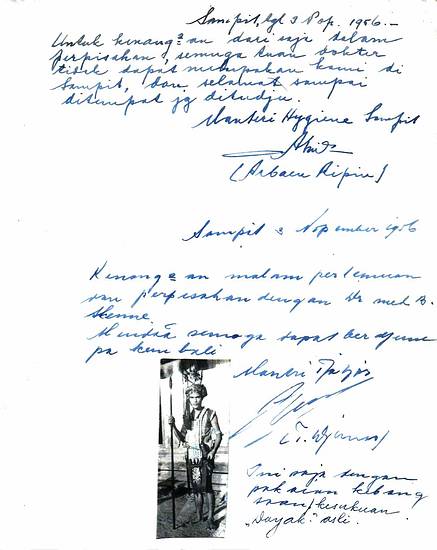 Sampit, tgl 3 Nop. 1956.-
Untuk kenang²an dari saja dalam
perpisahan, semuga tuan dokter
tidak dapat melupakan kami di
Sampit, dan selamat sampai
ditempat jg ditudju.
Manteri Hygiene Sampit
(Arbaen Ripin)
Sampit 3 Nopember 1956
Kenang²an malam pertemuan
dan perpisahan dengan Dr med B.
Mendaä semoga dapat berdjum
pa kembali
Manteri Tjatjar
Ini saja dengan
pakaian kebang
saan/kesukuan
„Dayak" asli.